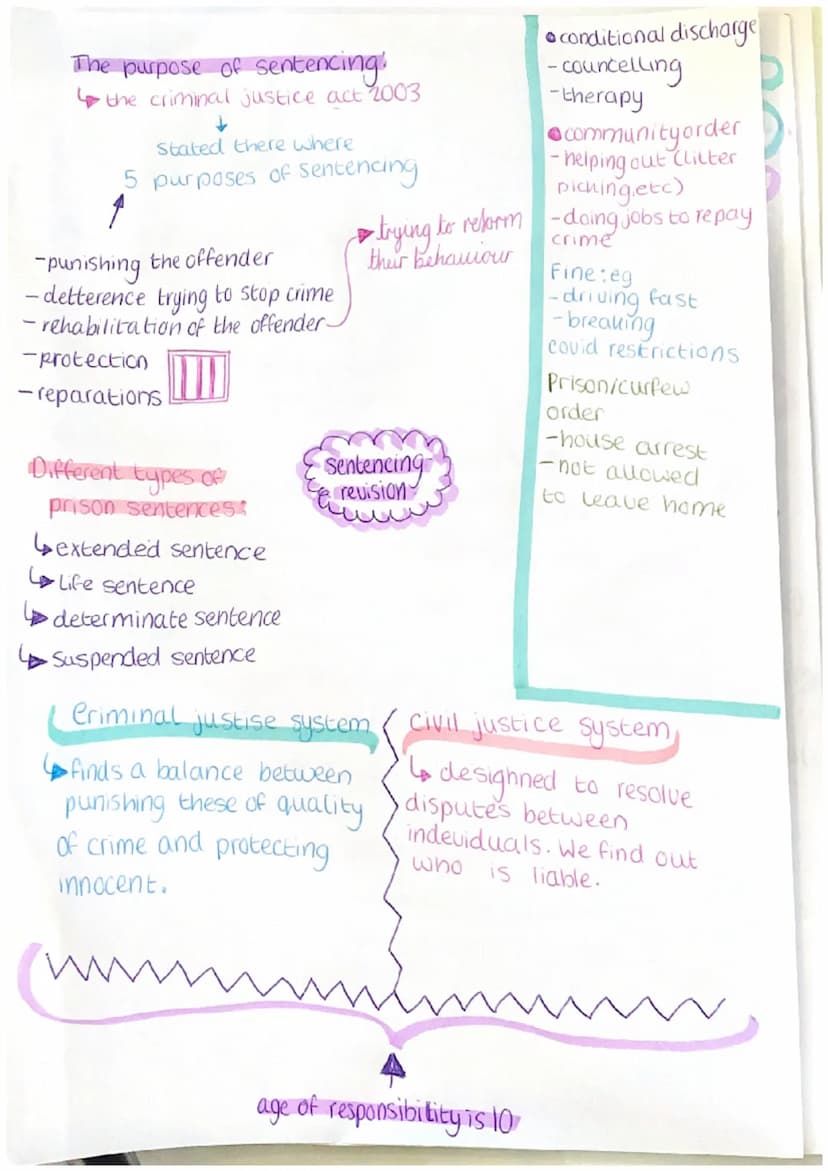 The purpose of sentencing!
↳ the criminal justice act 2003
↓
stated there where
5 purposes of sentencing
-punishing the offender
- detterence trying to stop crime
- rehabilitation of the offender
trying to reform
their behaviour
-protection
-reparations
Different types of
prison sentences:
↳ extended sentence
↳ Life sentence
↳ determinate sentence
↳ Suspended sentence
sentencing
revision
• conditional discharge
- councelling
-therapy
• community order
- helping out (litter
picking, etc)
- doing jobs to repay
crime
Fine: eg
- driving fast
- breaking
covid restrictions
Prison/curfew
order
-house arrest
-not allowed
to leave home
Criminal justise system
↳ finds a balance between
punishing these of quality
of crime and protecting
innocent.
civil justice system
↳ designned to resolve
disputes between
indeviduals. We find out
who is liable.
age of responsibility is 10